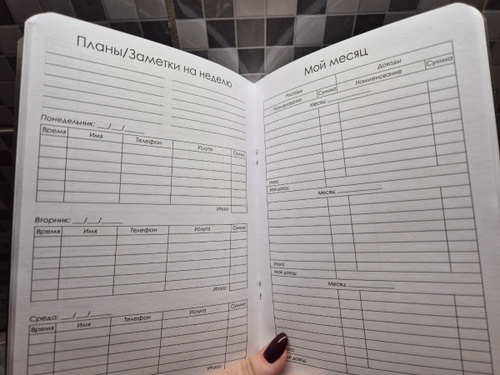 Планы/Заметки на неделю
Понедельник: __/__/____
Время Имя Телефон Услуга Сумма
Итого:
Вторник: __/__/____
Время Имя Телефон Услуга Сумма
Итого:
Среда: __/__/____
Время Имя Телефон Услуга Сумма
Мой месяц
Расходы Доходы
Наименование Сумма Наименование Сумма
Месяц: ____________
Итого:
Мой доход:
Месяц: ____________
Итого:
Мой доход:
Месяц: ____________
Итого: